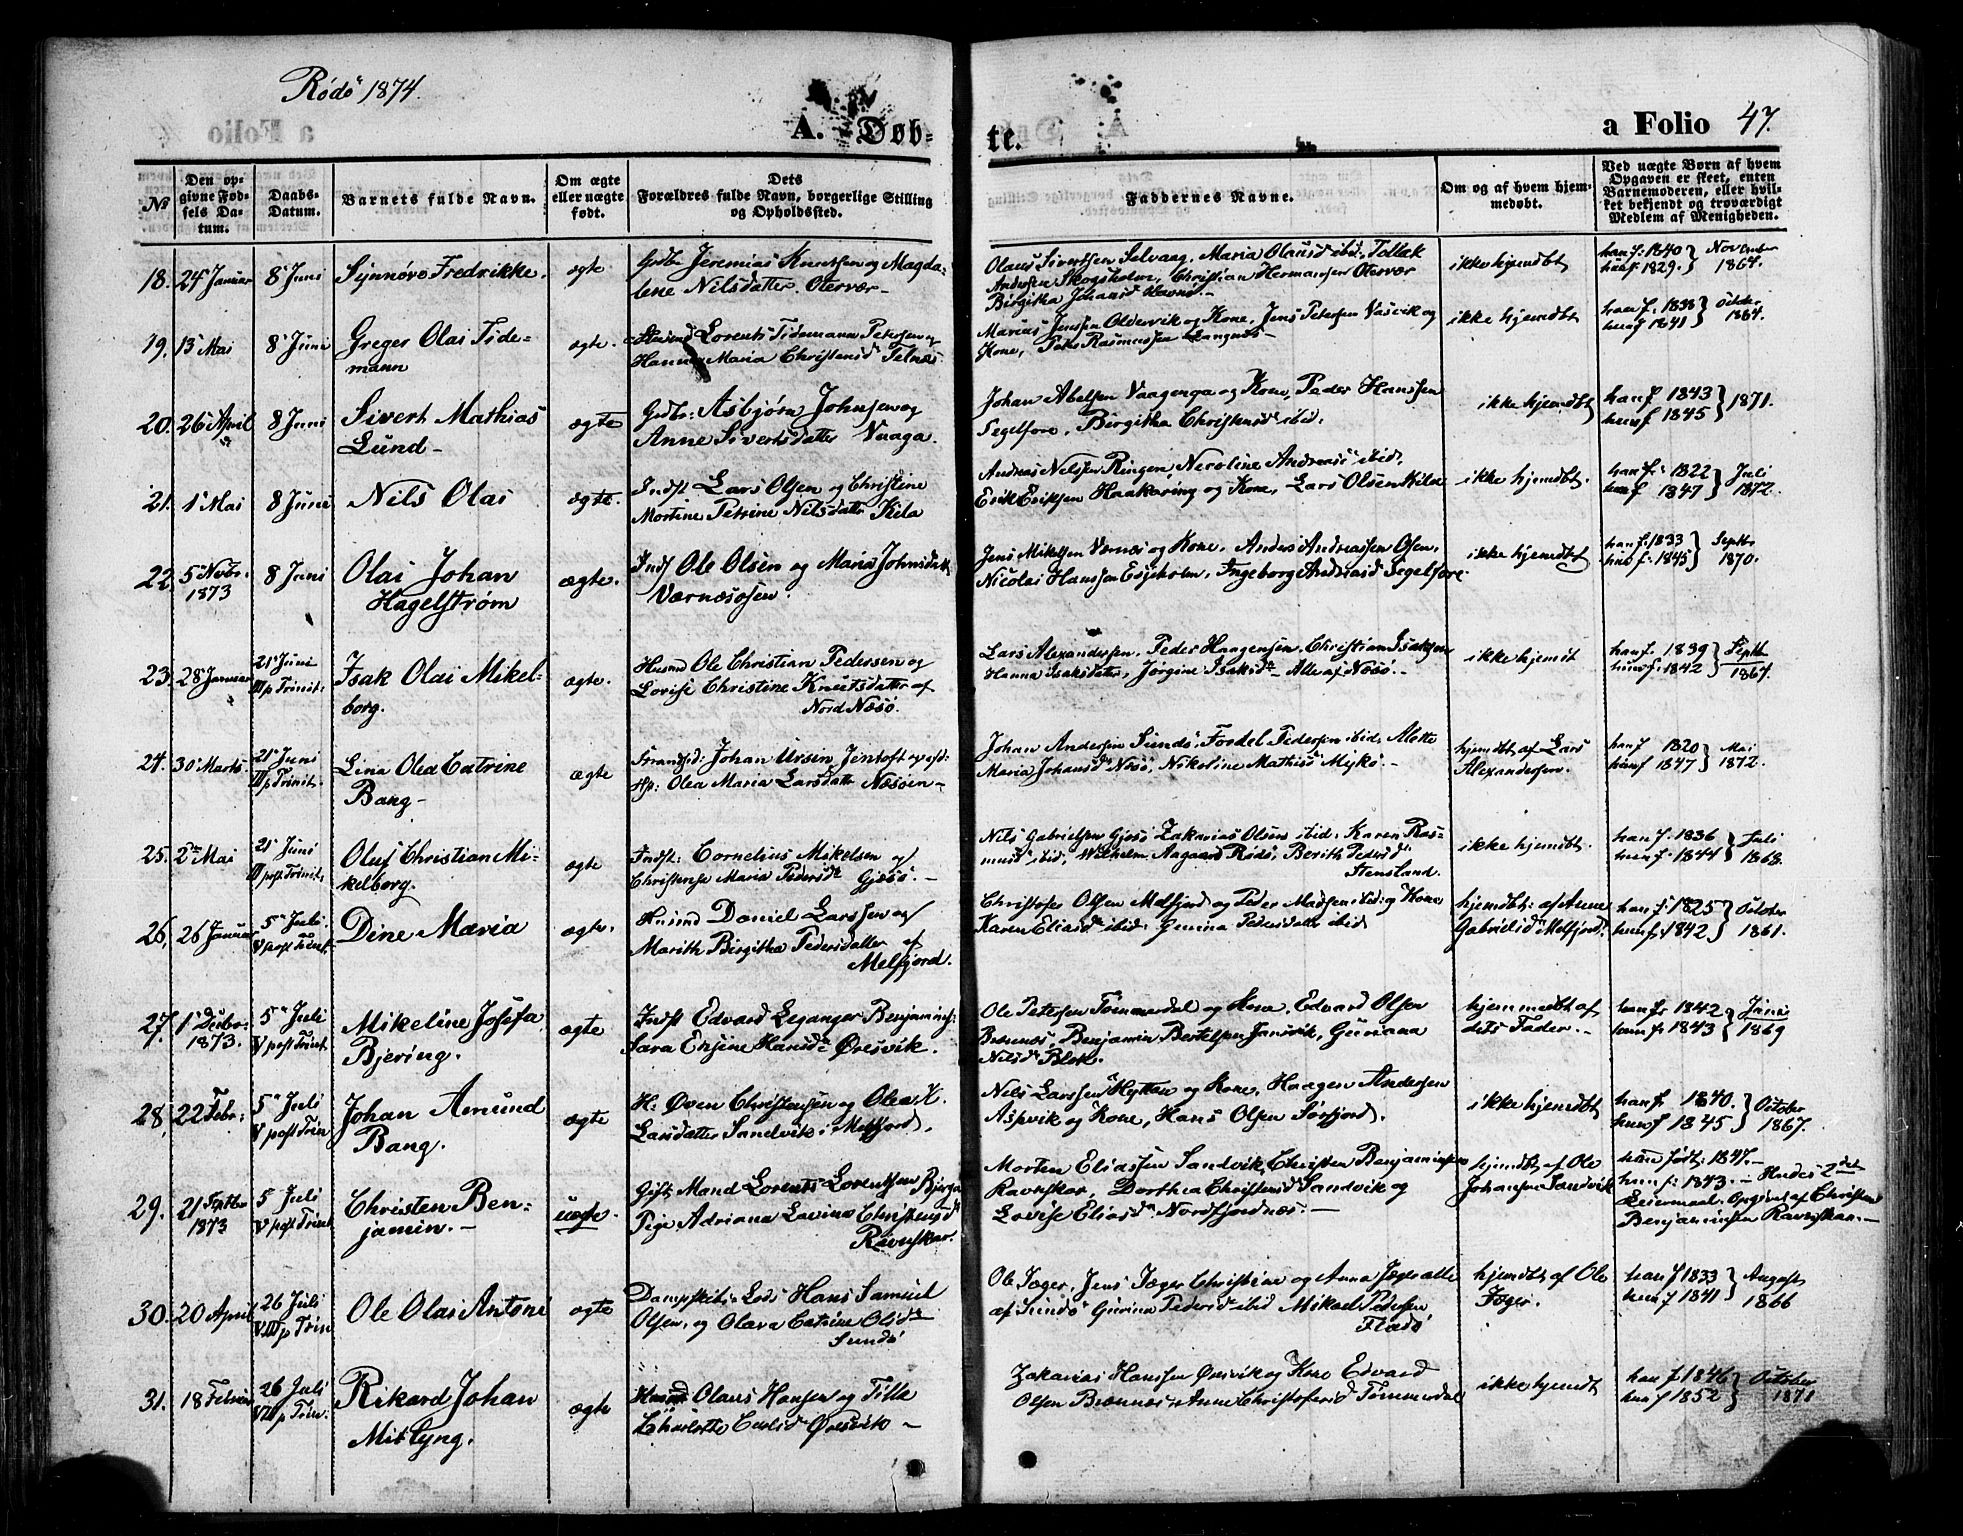 Rödö 1874.
A. Døb-
te.
a Folio 47.
No
Den op-
givne Fød-
sels Da-
tum.
Daabs-
Datum.
Barnets fulde Navn.
Om ægte
eller uægte
født.
Dets
Forældres fulde Navn, borgerlige Stilling
og Opholdssted.
Faddernes Navne.
Om og af hvem hjem-
medøbt.
Ved uægte Børn af hvem
Opgaven er skeet, enten
Barnemoderen, eller hvil-
ket bekjendt og troværdigt
Medlem af Menigheden.
18. 24 Januar 8 Juni Synnøve Fredrikke. ægte
Grdbr Jeremias Knutsen og Magda-
lene Nilsdatter. Olesvær-
Olaus Sivertsen Selvaag, Maria Olausd ibid, Tollak
Andersen Skogsholm, Christian Hermansen Olesvær
Birgitha Johansd Havnø.-
ikke hjemdbt
han f. 1840
hun f. 1829.
November
1864.
19. 13 Mai 8 Juni Greger Olai Tide-
mann
ægte.
Lorents Tidemann Petersen og
Hanna Maria Christensd Telnæs
Marius Jenssen Oldervik og Kone, Jens Petersen Vasvik og
Kone, Peter Rasmussen Langnæs-
ikke hjemdbt
han f. 1838
hun f 1841
October
1864.
20. 26 April 8 Juni Sivert Mathias
Lund-
ægte
Grdbr: Asbjørn Johnsen og
Anne Sivertsdatter Vaaga.
Johan Abelsen Vaagenga og Kone, Peder Hanssen
Segelfore, Birgitha Christensd ibid.
ikke hjemdbt
han f 1843
hun f 1845
1871.
21. 1 Mai 8 Juni Nils Olai ægte.
Indst Lars Olsen og Christine
Mortine Petrine Nilsdatter Kila
Andreas Nilssen Ringen, Nicoline Andreasd ibid,
Erik Eriksen Haakaring og Kone, Lars Olsen Kila
ikke hjemdbt.
han f. 1822
hun f 1847
Juli
1872.
22. 5 Novbr.
1873
8 Juni Olai Johan
Hagelstrøm
ægte.
Inds Ole Olsen og Maria Johnsdatt
Værnæsosen.
Jens Mikelsen Værnæs og Kone, Anders Andreassen Osen,
Nicolai Hanssen Esjeholm, Ingeborg Andreasd Segelfore
ikke hjemdbt
han f. 1833
hun f. 1845
Septbr
1870.
23. 28 Januar 21 Juni
III p Trinit.
Isak Olai Mikel-
borg.
ægte.
Husmd Ole Christian Pedersen og
Lovise Christine Knutsdatter af
Nord Næsø.
Lars Alexandersen, Peder Haagensen, Christian Isaksen
Hanna Isaksdatter, Jørgine Isaksd- Alle af Næsø.-
ikke hjemdt
han f. 1839
hun f. 1842
Septbr
1867.
24. 30 Marts. 21 Juni
III p Trinit.
Lina Olea Catrine
Bang-
ægte
Strandsd: Johan Ursin Jentoft og
Hst: Olea Maria Larsdatt Næsøen-
Johan Andersen Sundø, Fordel Pedersen ibid. Mette
Maria Johansd Næsø, Nikoline Mathisd Myko.-
hjemdbt af Lars
Alexandersen.
han f 1820
hun f 1847
Mai
1872.
25. 2 Mai 21 Juni
III post Trinit.
Oluf Christian Mi-
kelborg.
ægte
Indst: Cornelius Mikelsen og
Christense Maria Pedersdt Gjesø.-
Nils Gabrielsen Gjesø Zakarias Olsen ibid. Karen Ras-
musd ibid, Wilhelm Aagaard Rödø, Berith Pedersd
Stensland.
ikke hjemdbt.
han f. 1836
hun f. 1844
Juli
1868.
26. 26 Januar 5 Juli
V post Trinit.
Dine Maria ægte.
Husmd Daniel Larssen og
Marith Birgitha Pedersdatter af
Melfjord.
Christofer Olsen Melfjord og Peder Madsen ibid: og Kone
Karen Eliasd ibid: Gunina Pedersdatter ibid
hjemdbt: af Anne
Gabrielsd Melfjord.
han f: 1825
hun f: 1842
October
1861.
27. 1 Decbr.
1873.
5 Juli
V post Trinit.
Mikeline Josefa
Bjering.
ægte
Indst Edvard Leganger Benjamins:
Sara Enjine Hansdt Øresvik.
Ole Petersen Tømmerdal og Kone, Edvard Olsen
Brænnæs, Benjamin Bertelsen Jansvik, Guriana
Nilsd Blok.
hjemmedbt af
dets Fader.-
han f: 1842
hun f: 1843
Juni
1869
28. 22 Febr. 5 Juli
V post Trin
Johan Amund
Bang.
ægte
H: Øven Christensen og Olea K.
Larsdatter Sandvik i Melfjord.
Nils Larssen Hyttan og Kone, Haagen Andersen
Aspvik og Kone, Hans Olsen Sørfjord.
ikke hjemdbt
han f. 1840.
hun f 1845
October
1867.
29. 21 Septbr
1873
5 Juli
V post Trinit
Christen Ben-
jamin.-
uægte.
Gift Mand Lorents Lorentsen Bjerga
Pige Adriana Lavina Christensd
Ravnskar.
Morten Eliassen Sandvik, Christen Benjaminsen
Ravnskar, Dorthea Christensd Sandvik og
Lovise Eliasd Nordfjordnæs.-
hjemdbt af Ole
Johansen Sandvik
han født: 1847.-
hun f: 1843.- Hendes 2det
Leiermaal. Opgivet af Christen
Benjaminsen Ravnskar.-
30. 20 April 26 Juli
VIII p Trin
Ole Olai Antoni ægte
Dampskibs: Lods Hans Samuel
Olsen, og Olava Catrine Olsdt
Sundø
Ole Jæger, Jens Jæger Christine og Anna Jæger alle
af Sundø Gurina Pedersd ibid Mikael Pedersen
Flatø
hjemdbt af Ole
Jæger.
han f 1833
hun f 1841
August
1866
31. 18 Februar 26 Juli
VIII p Trin.
Rikard Johan
Mitlyng.
ægte
Husmd Olaus Hansen og Titla
Charlotte Carlsd Øresvik-
Zakarias Hanssen Øresvik og Kone Edvard
Olsen Brænnæs Anne Christofersd Tømmerdal
ikke hjemdt
han f 1846
hun f 1852
October
1871